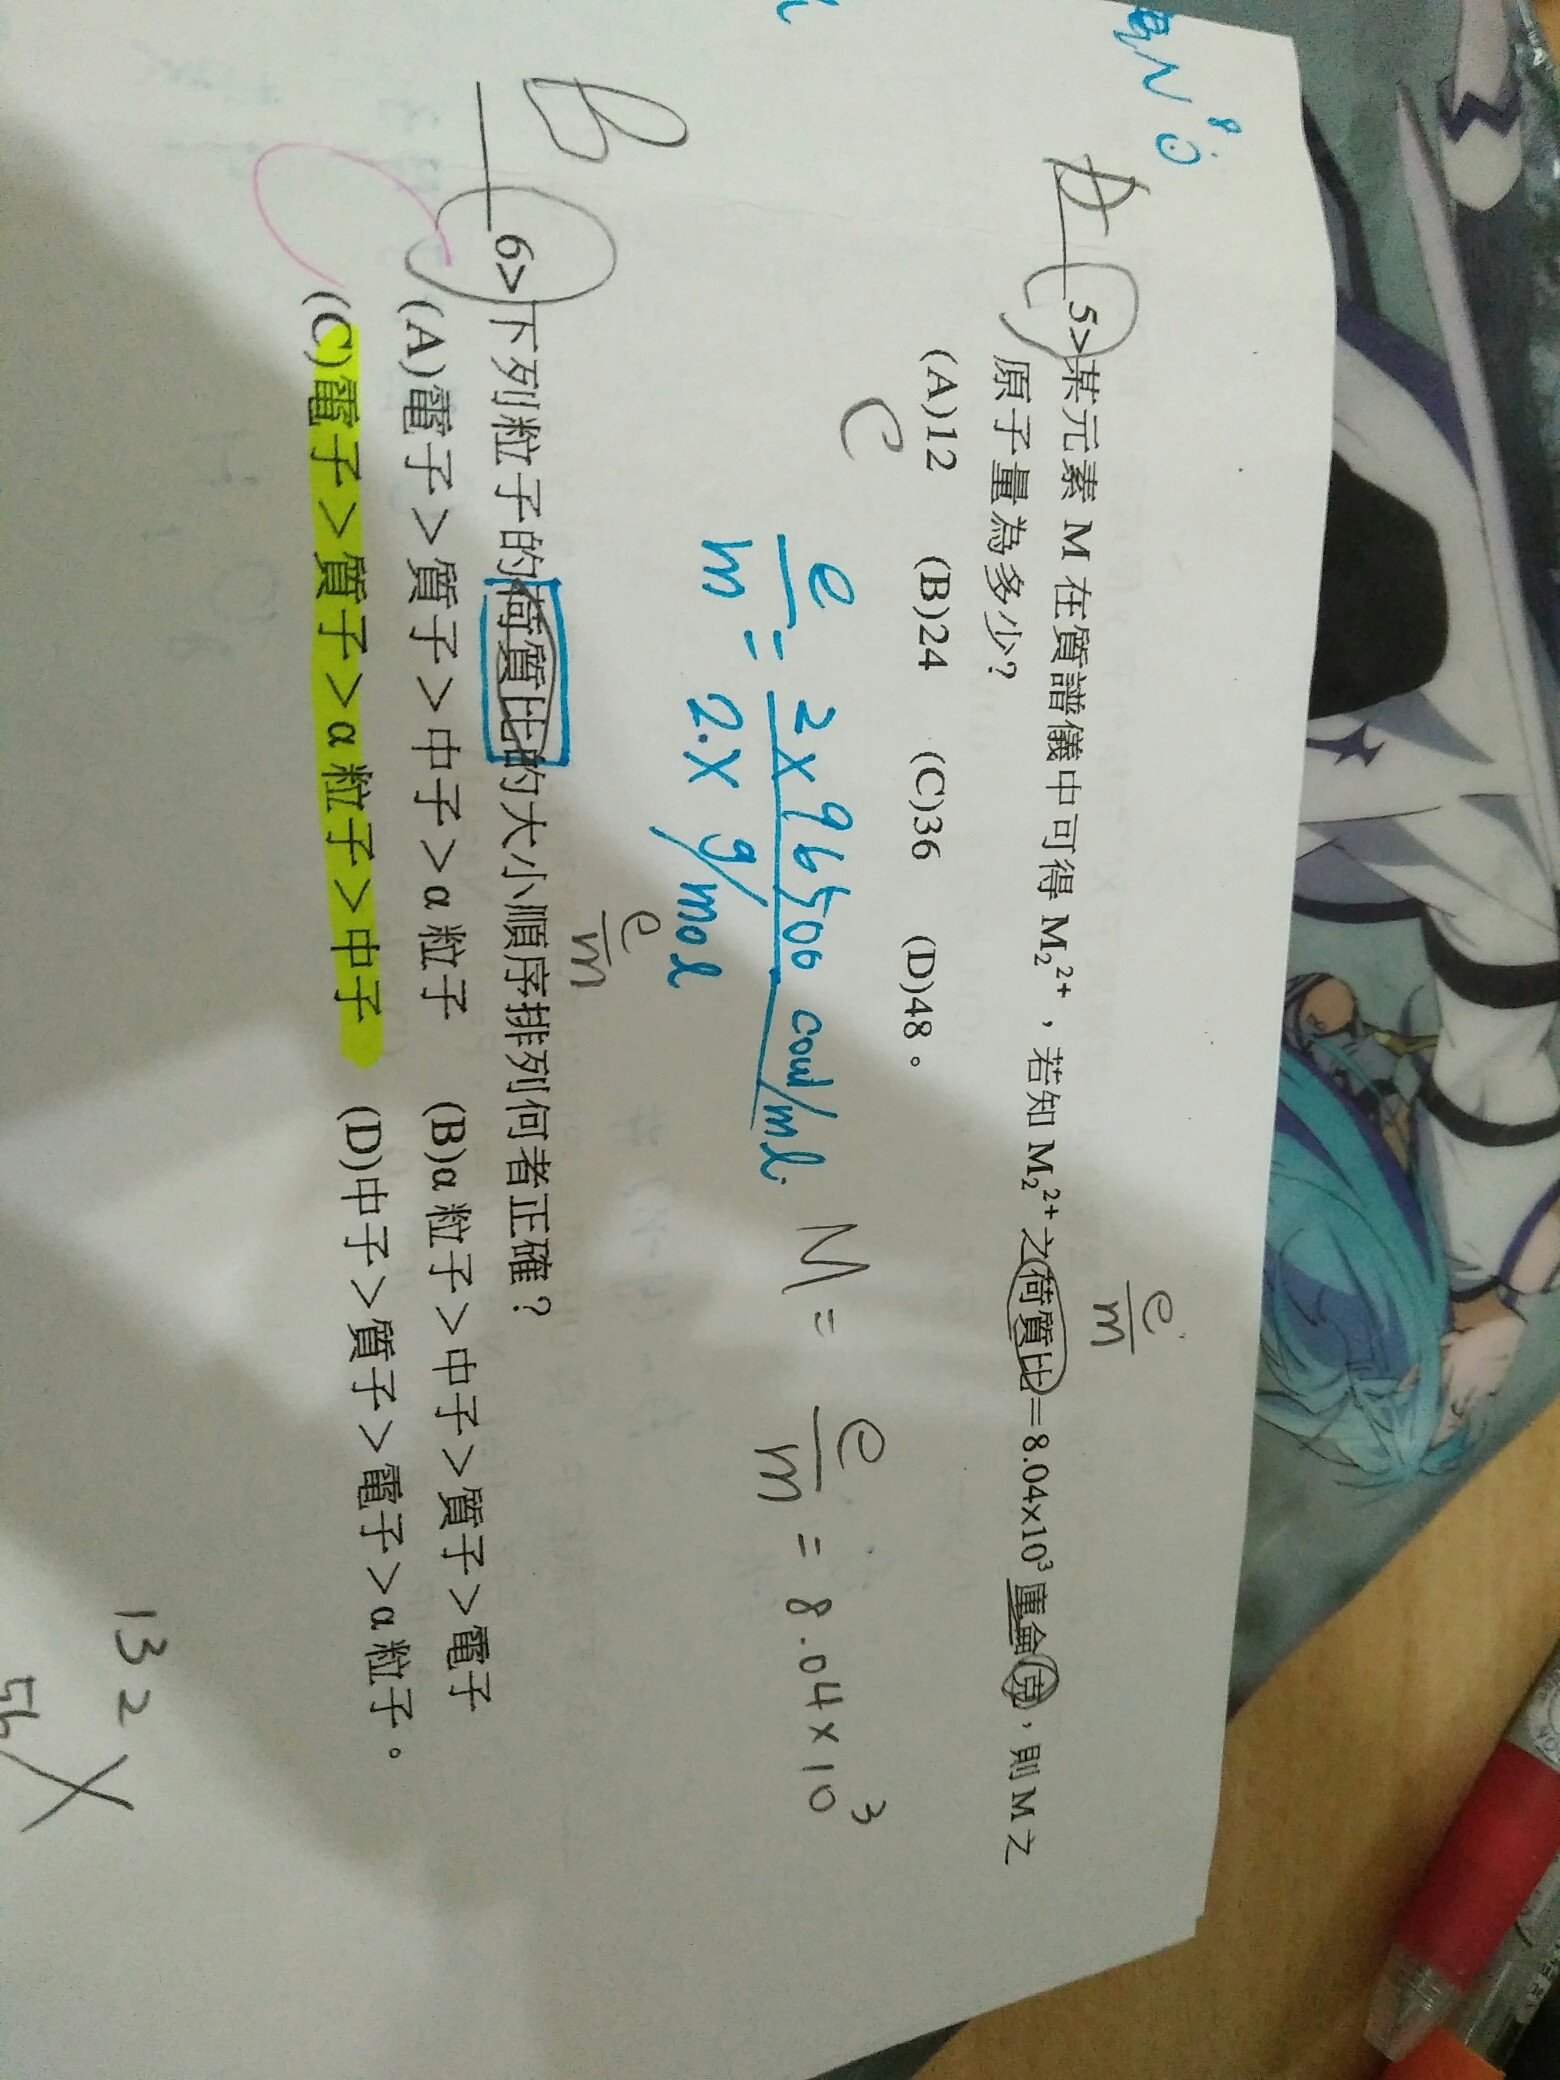 A 5>某元素 M 在質譜儀中可得 M₂²⁺，若知 M₂²⁺之荷質比=8.04×10³庫侖/克，則 M 之
原子量為多少?
e/m
(A)12 (B)24 (C)36 (D)48。
C
e/m = 2×96500 coul/mol
2·X g/mol
M = e/m = 8.04×10³
e/m
B 6>下列粒子的荷質比的大小順序排列何者正確？
(A)電子>質子>中子>α粒子 (B)α粒子>中子>質子>電子
(C)電子>質子>α粒子>中子 (D)中子>質子>電子>α粒子。
132
56 X